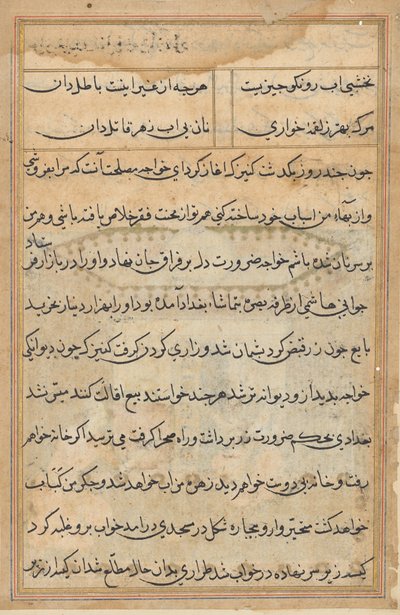 نخشبی اب رو نکو چیزیست
هرچه از غیر اینست باطل دان
مرک بهتر ز لقمهٔ خواری
نان بی اب زهر قاتل دان
چون چند روز بکذشت کنیزک اغاز کرد ای خواجه مصلحت آنست که مرا بفروشی
و از بهاء من اسباب خود ساخته کنی هم تو از محنت فقر خلاص یافته باشی و هم من
بر سر نان شده باشم خواجه ضرورت دل بر فراق جان بنهاد و او را در بازار فرستاد
جوانی هاشمی از طرف بصره بتماشاء بغداد آمده بود او را بهزار دینار بخرید
بایع چون زر قبض کرد پشیمان شد و زاری کردن کرفت کنیزک چون دیوانکی
خواجه بدید از و دیوانه تر شد هر چند خواستند بیع اقالت کنند میسّر نشد
بغدادی بحکم ضرورت زر برداشت و راه صحرا کرفت می ترسید اکر خانه خواهم
رفت و خانه بی دوست خواهم دید زهره من اب خواهد شد و جکر من کباب
خواهد کشت متحیّروار و بیچاره شکل در مسجدی درامد خواب برو غلبه کرد
کیسه زر زیر سر نهاده در خواب شد طرّاری بدان حال مطّلع شد ان کیسه از زیر